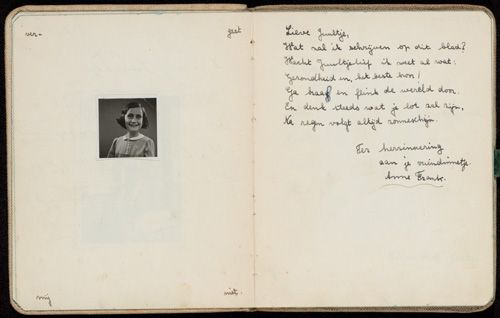 ver- geet
mij niet.
Lieve Juultje,
Wat zal ik schrijven op dit blad?
Wacht Juultjelief ik weet al wat:
Gezondheid en, het beste hoor!
Ga braaf en flink de wereld door.
En denk steeds wat je lot zal zijn,
Na regen volgt altijd zonneschijn.
Ter herinnering
aan je vriendinnetje
Anne Frank.